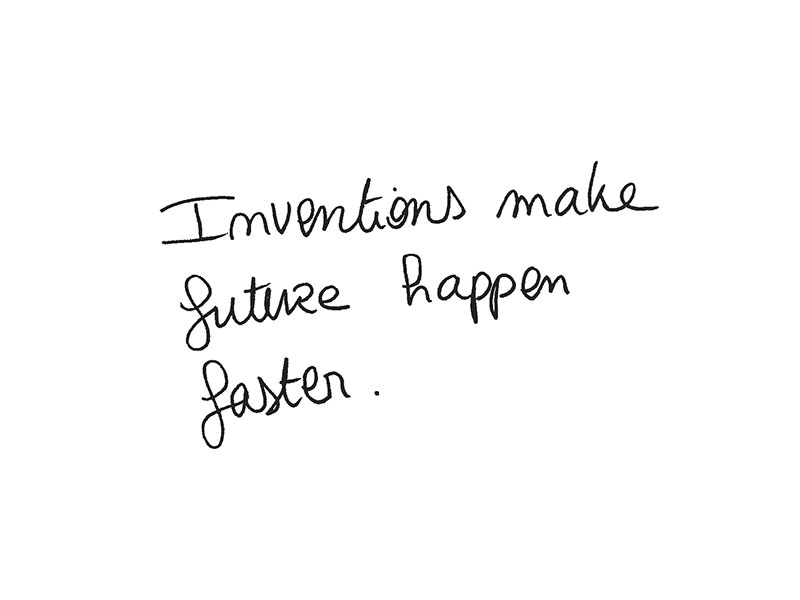 Inventions make
future happen
faster.